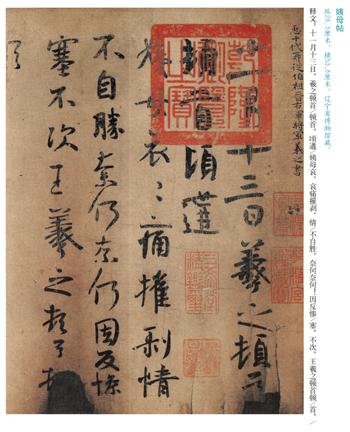 姨母帖
纵26.3厘米，横53.8厘米，辽宁省博物馆藏。
释文：十一月十三日，羲之顿首、顿首。顷遘/姨母哀，哀痛摧剥，情/不自胜。奈何奈何！因反惨/塞，不次。王羲之顿首顿/首。/
臣十代再從伯祖晉右軍將軍羲之書
十一月十三日羲之頓首
頓首頃遘
姨母哀〻痛摧剥情
不自勝奈何奈何因反慘
塞不次王羲之頓首頓
首
乾隆御覽之寶